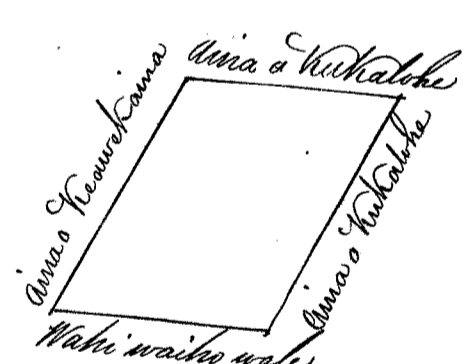 Aina o Kukalohe
Aina o Keawekaina
Aina o Kukalohe
Wahi waiho wale